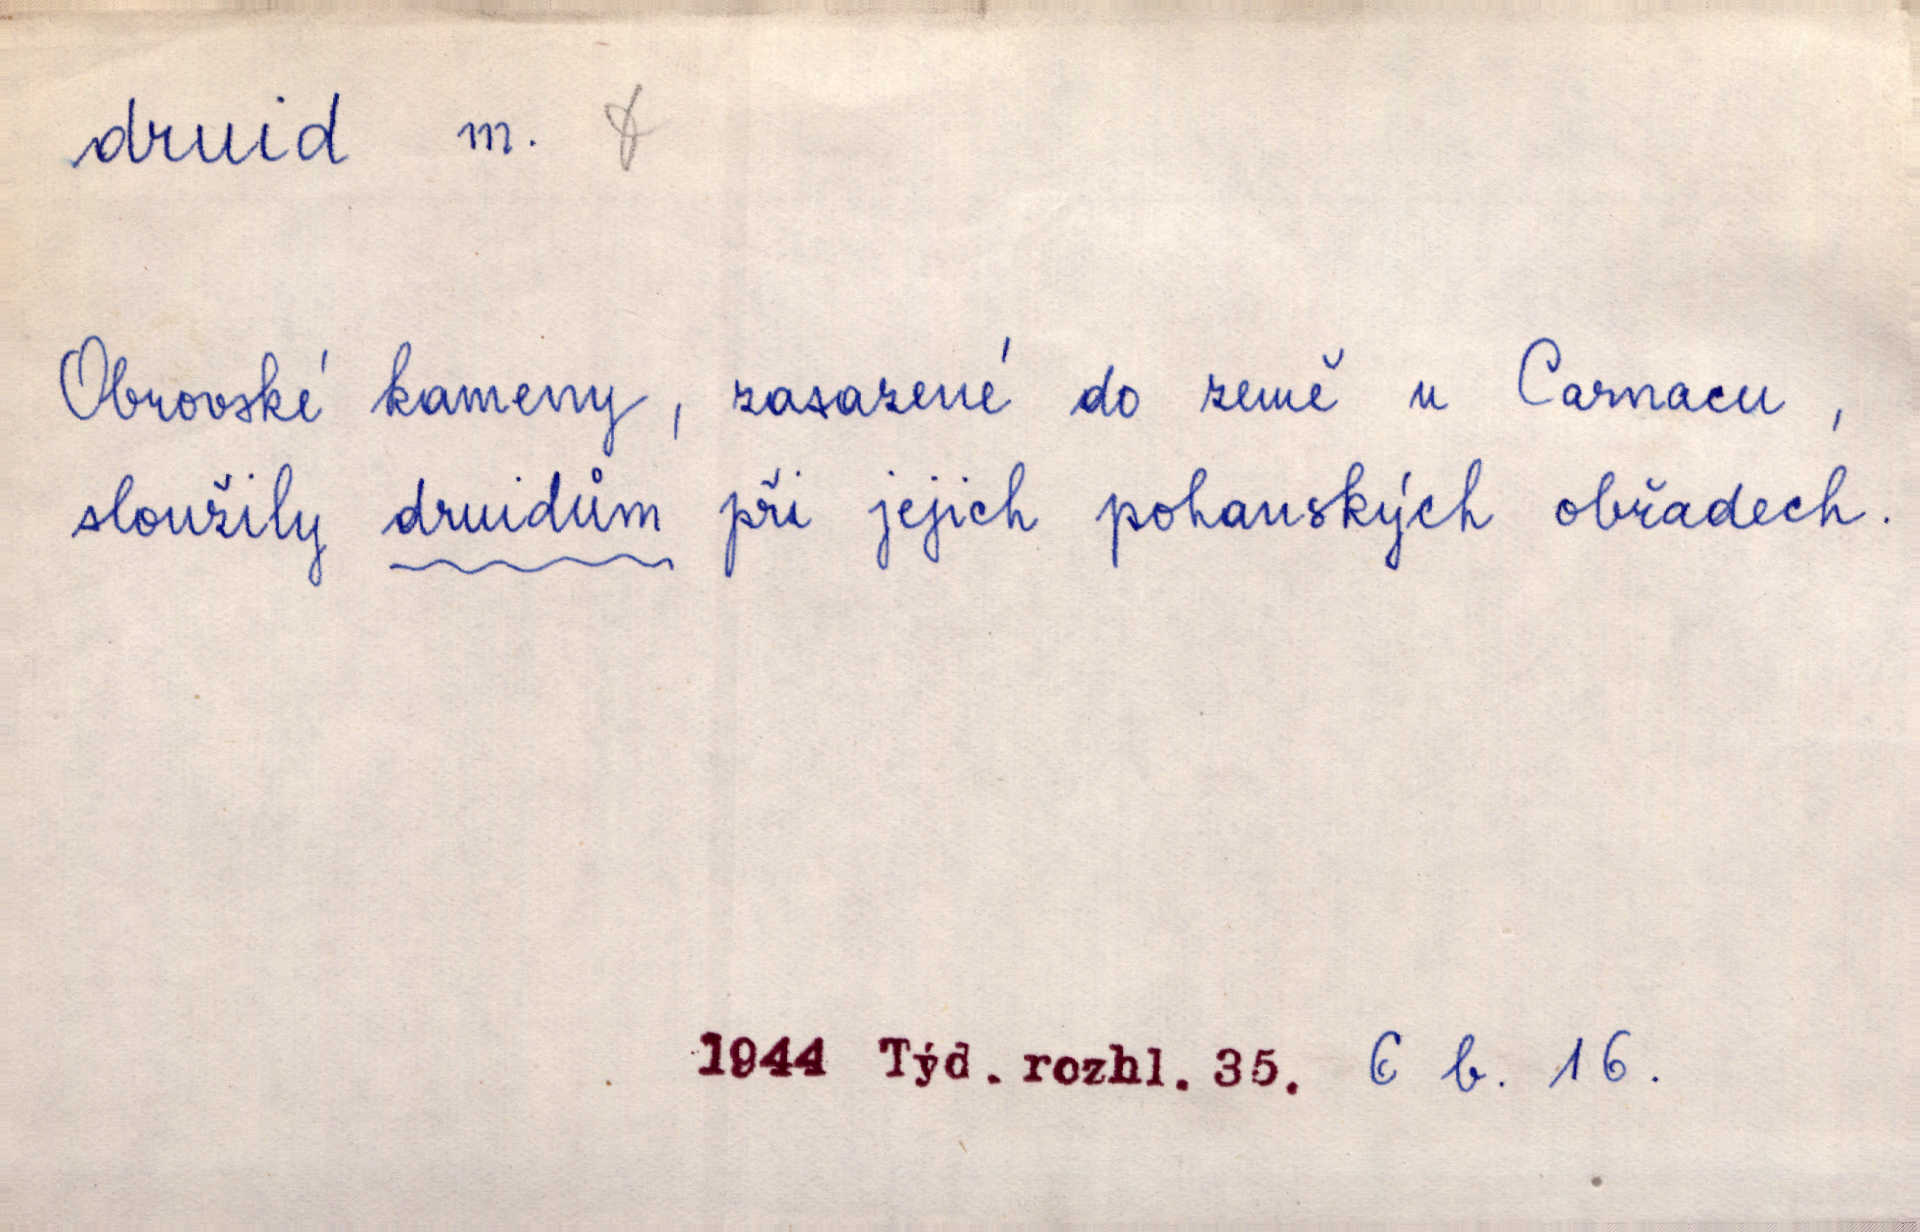 druid m.
Obrovské kameny, zasazené do země u Carnacu,
sloužily druidům při jejich pohanských obřadech.
1944 Týd. rozhl. 35. 6 b. 16.